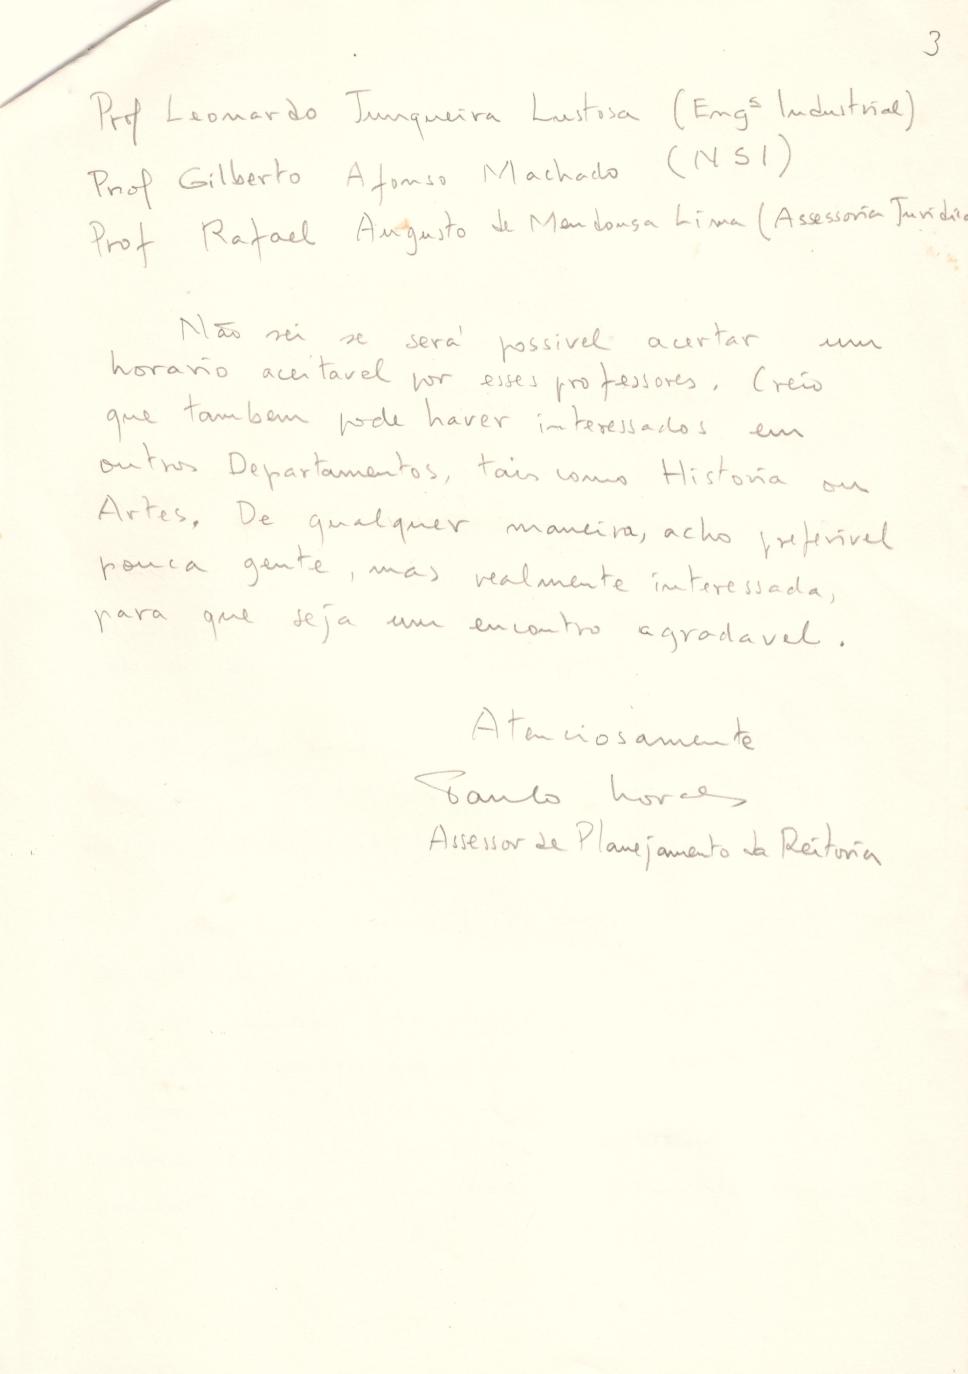 3
Prof Leonardo Junqueira Lustosa (Engª Industrial)
Prof Gilberto Afonso Machado (NSI)
Prof Rafael Augusto de Mendonsa Lima (Assessoria Juridica
Não sei se será possivel acertar um
horario aceitavel por esses professores. Creio
que tambem pode haver interessados em
outros Departamentos, tais como Historia ou
Artes. De qualquer maneira, acho preferivel
pouca gente, mas realmente interessada,
para que seja um encontro agradavel.
Atenciosamente
Paulo
Assessor de Planejamento da Reitoria